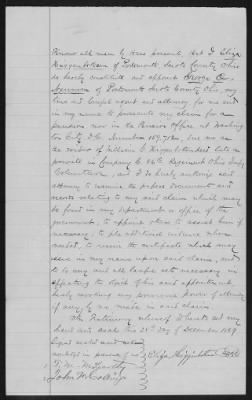 Know all men by these presents, that I Eliza
Higginbotham of Portsmouth Scioto County Ohio
do hereby constitute and appoint George O.
Newman of Portsmouth Scioto County Ohio, my
true and lawful agent and attorney for me and
in my name to prosecute my claim for a
pension now in the Pension Office at Washing
ton City D.C. Number
the widow of William Higginbotham late a
private in Company Regiment Ohio
Volunteers, and I do hereby authorize said
attorney to examine the papers documents and
records relating to my said claim which may
be found in any department or office of the
government, to appoint others to assist him if
necessary, to file additional evidence when
needed, to receive the certificate which may
issue in my name upon said claim, and
to do any and all lawful acts necessary in
effecting the object of this said appointment,
hereby revoking any previous power of attorney
if any, by me made in said claim.
In Testimony whereof I hereto set my
hand and seal this 21st day of December 1889
Signed sealed and acknow
ledged in presence of us Eliza Higginbotham Seal
McCarthy
John W.